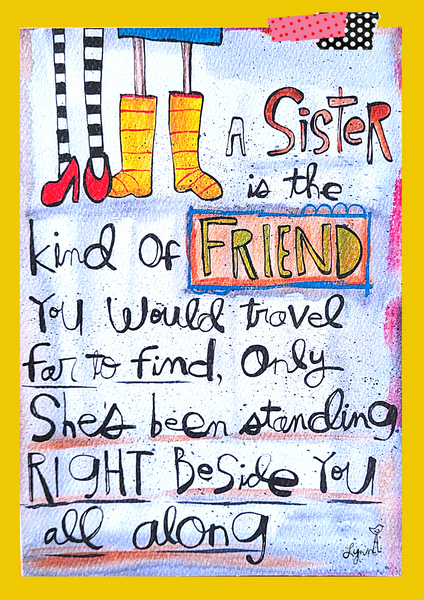 A SisteR
is the
kind Of FRIEND
You Would travel
far to find, Only
She's been standing
RIGHT BeSide You
all along
Lynn